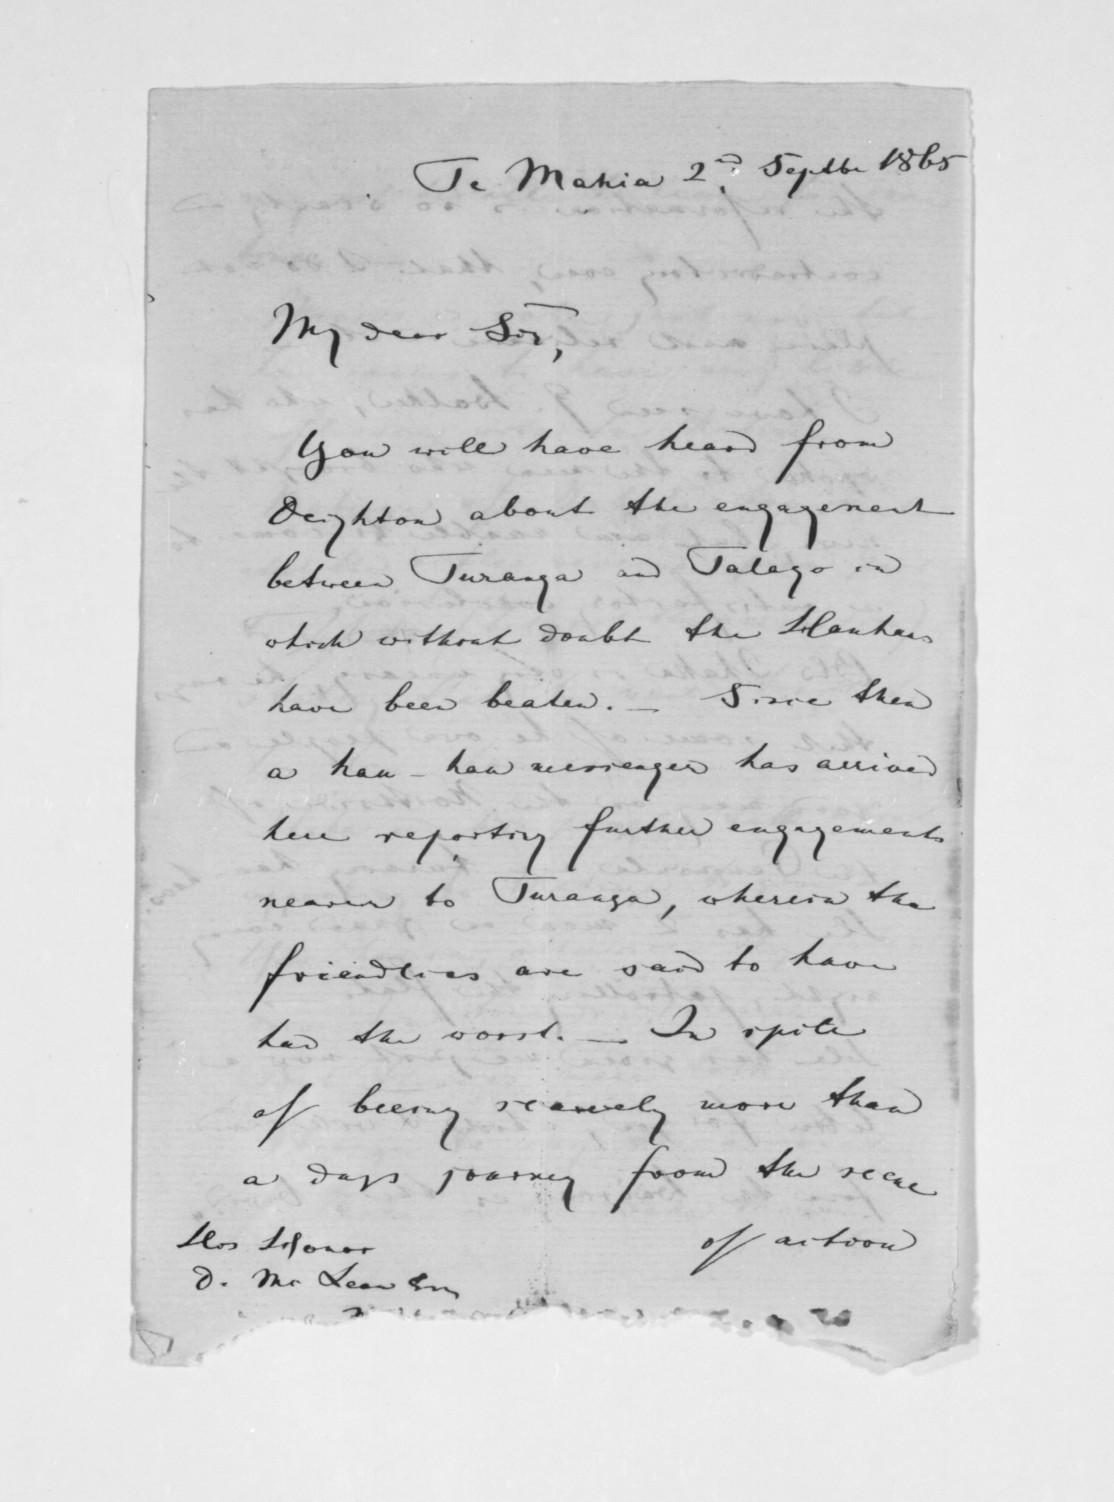 Te Mahia 2nd Septbr 1865
My dear Sir,
You will have heard from
Deighton about the engagement
between Turanga and Talago in
which without doubt the Hauhaus
have been beaten. — Since then
a hau-hau messenger has arrived
here reporting further engagements
nearer to Turanga, wherein the
friendlies are said to have
had the worst. — In spite
of beeing scarcely more than
a days journey from the scene
of action
His Honor
D. McLean Esq